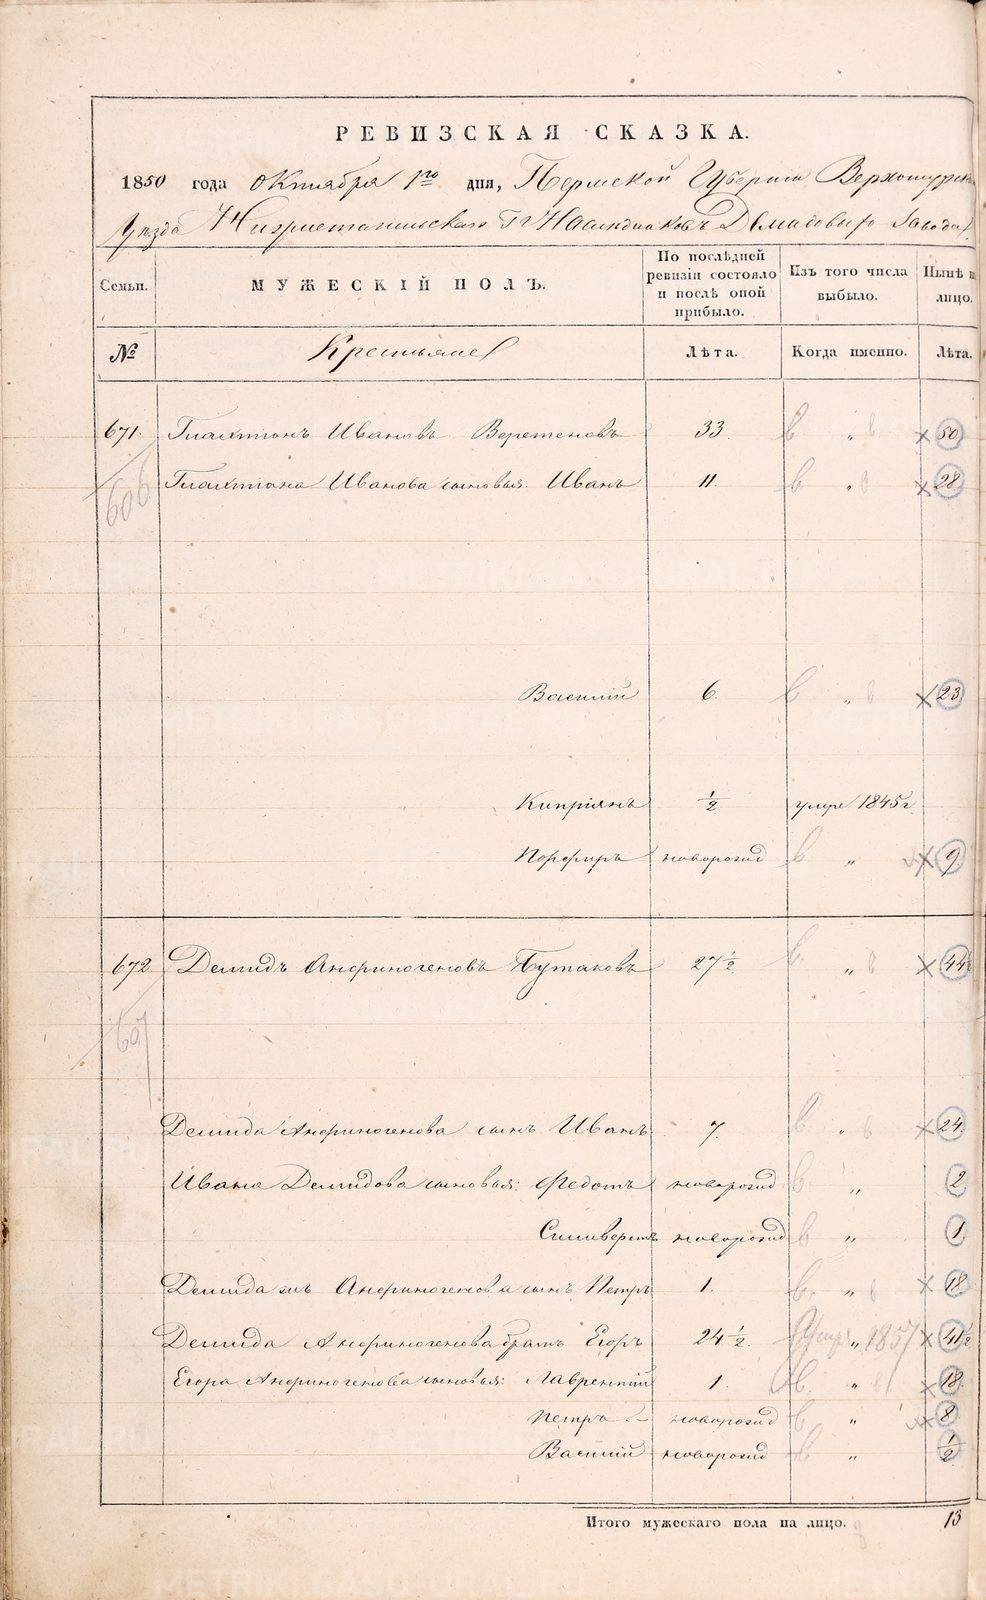 РЕВИЗСКАЯ СКАЗКА.
1850 года Октября 1го дня, Пермской Губернии Верхотурска
Уезда Нижнетагильскаго Гг Наследниковъ Демидовыхъ Завода
Семьи. МУЖЕСКІЙ ПОЛЪ. По послѣдней ревизіи состояло и послѣ оной прибыло. Изъ того числа выбыло. Нынѣ на лицо.
№ Крестьяне Лѣта. Когда именно. Лѣта.
671. Ивановъ Веретеновъ 33. в „ в 50
606
Иванова сыновья: Иванъ 11. в „ в 28
Василій 6. в „ в 23
Кипріянъ 1/2 умре 1845 г.
Порфиръ новорожд в „ 9
672 Демидъ Анфиногеновъ Бутаковъ 27 1/2 в „ в 44 1/2
607
Демида Анфиногенова сынъ Иванъ 7. в „ в 24.
Ивана Демидова сыновья: Федотъ новорожд в „ 2
Силиверстъ новорожд в „ 1.
Демида Анфиногенова сынъ Петръ 1. в. „ в 18
Демида Анфиногенова братъ Егоръ 24 1/2. умре „ 1857 41 1/2
Егора Анфиногенова сыновья: Лаврентій 1. в. „ в 18.
Петръ новорожд в „ 8
Василій новорожд в „ 1/2
Итого мужескаго пола на лицо. 13
METRIKI.GASO-URAL.RU